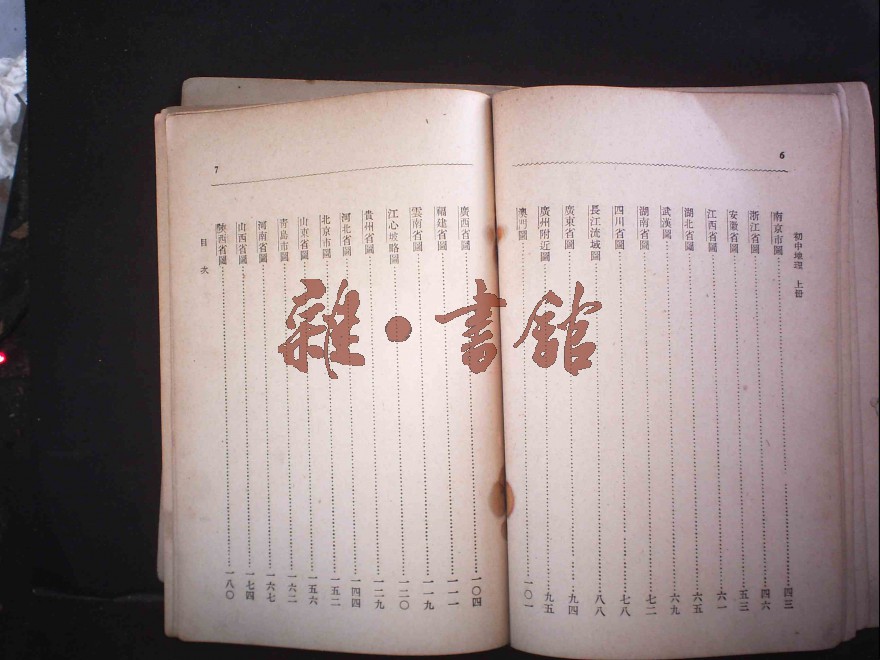 6
初中地理 上册
南京市圖 四三
浙江省圖 四六
安徽省圖 五三
江西省圖 六一
湖北省圖 六五
武漢圖 六九
湖南省圖 七二
四川省圖 七八
長江流域圖 八八
廣東省圖 九四
廣州附近圖 九五
澳門圖 一〇一
7
廣西省圖 一〇四
福建省圖 一一一
雲南省圖 一一九
江心坡略圖 一二〇
貴州省圖 一二九
河北省圖 一四四
北京市圖 一五二
山東省圖 一五六
青島市圖 一六二
河南省圖 一六七
山西省圖 一七四
陝西省圖 一八〇
目次
雜·書館